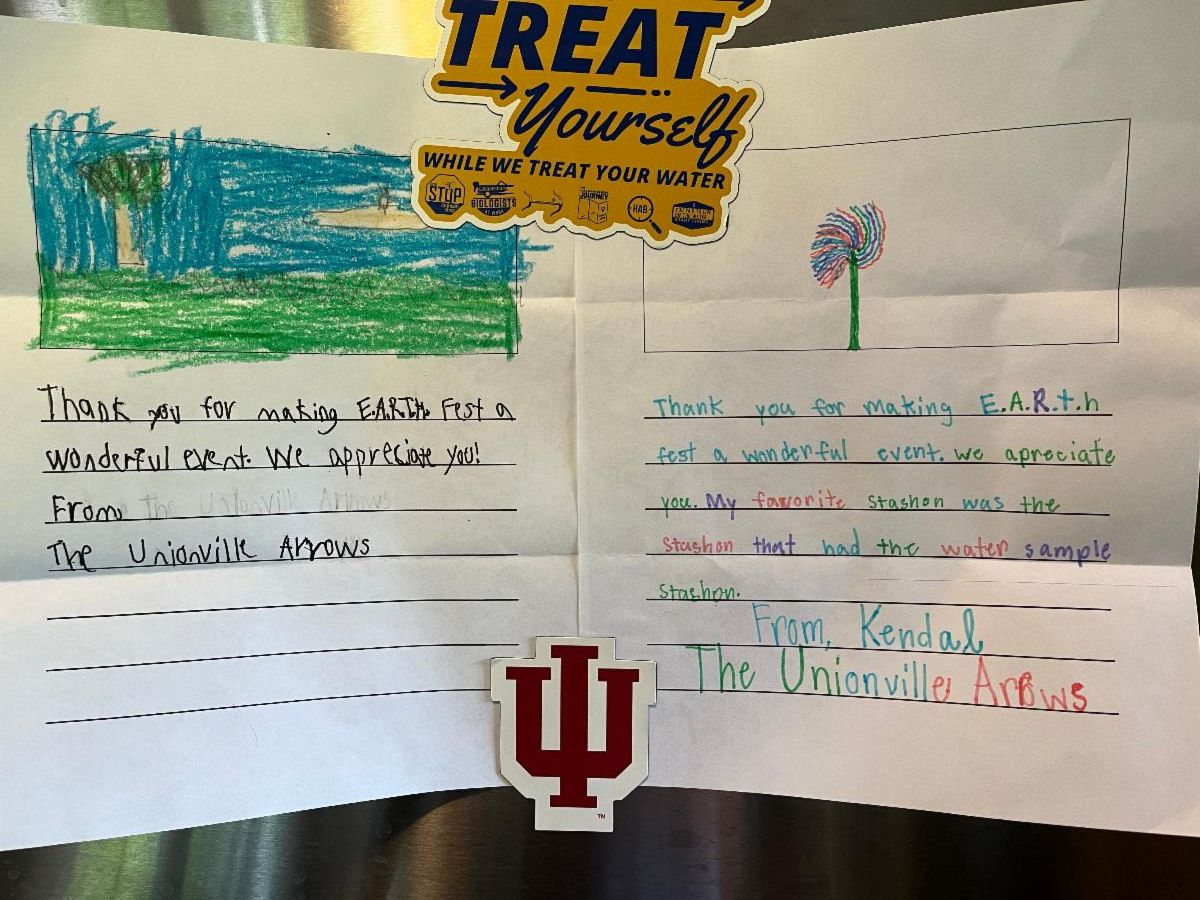 TREAT
Yourself
WHILE WE TREAT YOUR WATER
STOP
BIOLOGISTS
JOURNEY
HAB
Thank you for making E.A.R.T.H. Fest a
wonderful event. We appreciate you!
From The Unionville Arrows
The Unionville Arrows
Thank you for making E.A.R.t.h
fest a wonderful event. we apreciate
you. My favorite stashon was the
stashon that had the water sample
stashon.
From, Kendal
The Unionville Arows
IU
TM